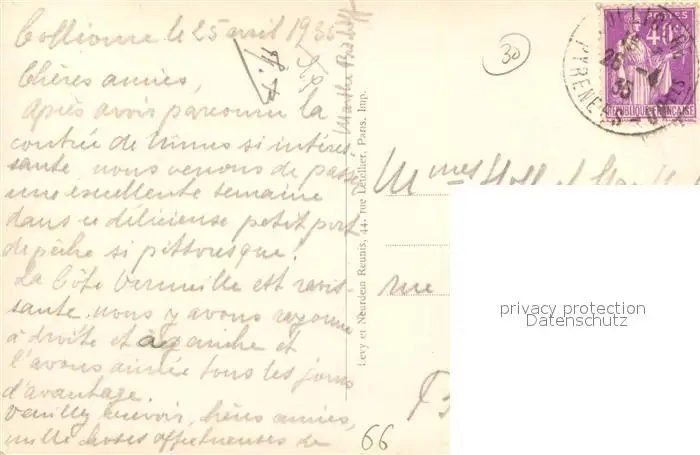 Collioure le 25 avril 1935
Chères amies,
Après avoir parcouru la
contrée de Nîmes si intéres-
sante, nous venons de passer
une excellente semaine
dans ce délicieux petit port
de pêche si pittoresque.
La Côte Vermeille est ravis-
sante, nous y avons rayonné
à droite et à gauche et
l'avons aimée tous les jours
d'avantage.
Veuillez recevoir, chères amies,
mille choses affectueuses de
Marthe
Levy et Neurdein Reunis, 44, rue Letellier, Paris, Imp.
30
POSTES
40c
REPUBLIQUE FRANÇAISE
26 -4
35
PYRENEES
Mmes
rue
66
privacy protection
Datenschutz